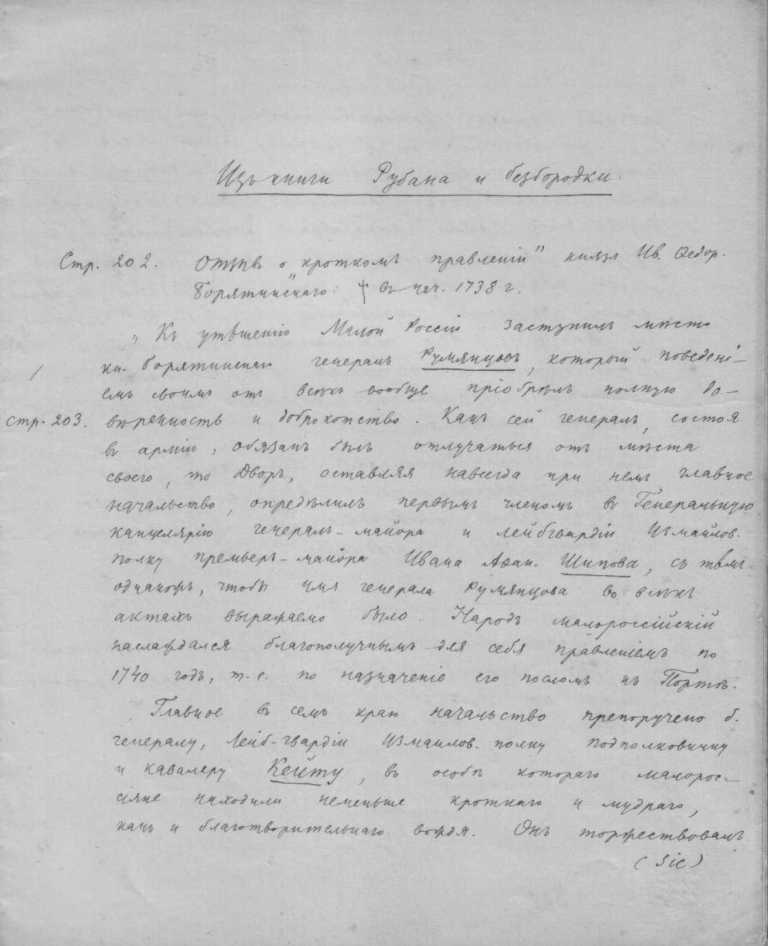 Изъ книги Рубана и Безбородки.
Стр. 202. Отзывъ о кроткомъ правленіи" князя Ив. Ѳедор.
Борятинскаго. † въ 1738 г.
"Къ утѣшенію Малой Россіи заступилъ мѣсто
кн. Борятинскаго генералъ Румянцовъ, который поведені-
емъ своимъ отъ всѣхъ вообще пріобрѣлъ полную до-
стр. 203. вѣренность и доброхотство. Какъ сей генералъ, состоя
въ арміи, обязанъ былъ отлучаться отъ мѣста
своего, то Дворъ, оставляя навсегда при немъ главное
начальство, опредѣлилъ первымъ членомъ въ Генеральную
канцелярію генералъ-майора и лейбгвардіи Измайлов.
полку премьеръ-майора Ивана Афан. Шипова, съ тѣмъ
однакожъ, чтобъ имя генерала Румянцова во всѣхъ
актахъ выражаемо было. Народъ малороссійскій
наслаждался благополучнымъ для себя правленіемъ по
1740 годъ, т. е. по назначеніе его посломъ къ Портѣ.
Главное въ семъ краю начальство препоручено б.
генералу, Лейб-гвардіи Измайлов. полку подполковнику
и кавалеру Кейту, въ особѣ котораго малорос-
сіяне находили неменьше кроткаго и мудраго,
какъ и благотворительнаго вождя. Онъ торжествовалъ
(sic)